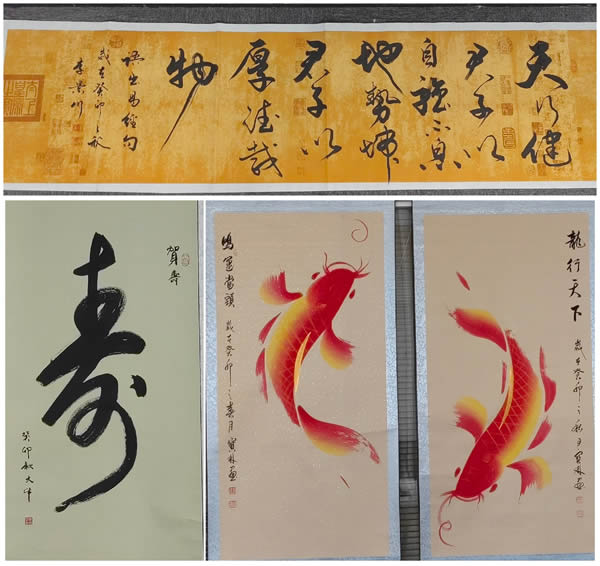 天行健
君子以
自強不息
地勢坤
君子以
厚德載
物
語出易經句
歲在癸卯之秋
賀壽
壽
癸卯秋
鴻運當頭
歲在癸卯之春月寶林畫
龍行天下
歲在癸卯之秋月寶林畫